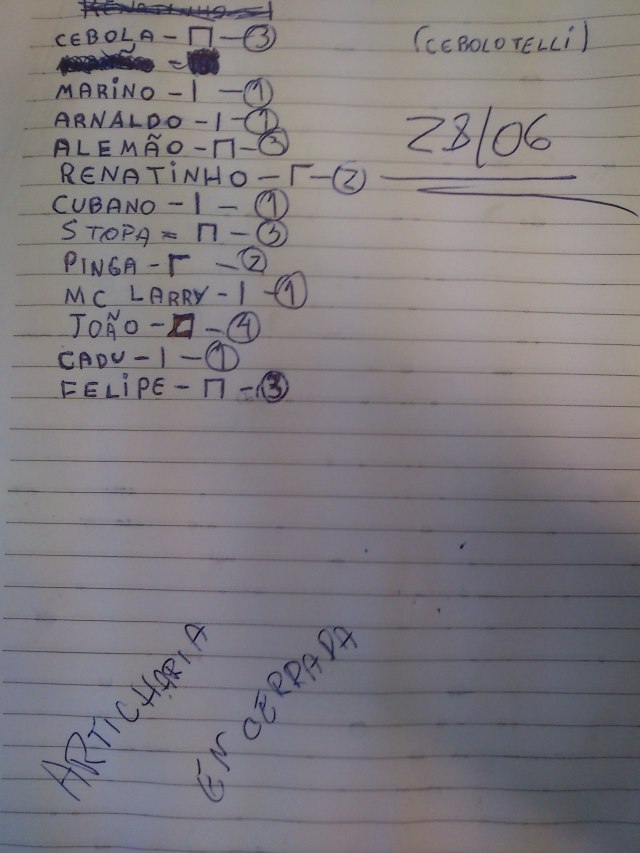 CEBOLA - ⊓ - ③
(CEBOLOTELLI)
MARINO - | - ①
ARNALDO - | - ①
ALEMÃO - ⊓ - ③
28/06
RENATINHO - Γ - ②
CUBANO - | - ①
STOPA = ⊓ - ③
PINGA - Γ - ②
MC LARRY - | - ①
JOÃO - □ - ④
CADU - | - ①
FELIPE - ⊓ - ③
ARTICHARIA
ENCERRADA